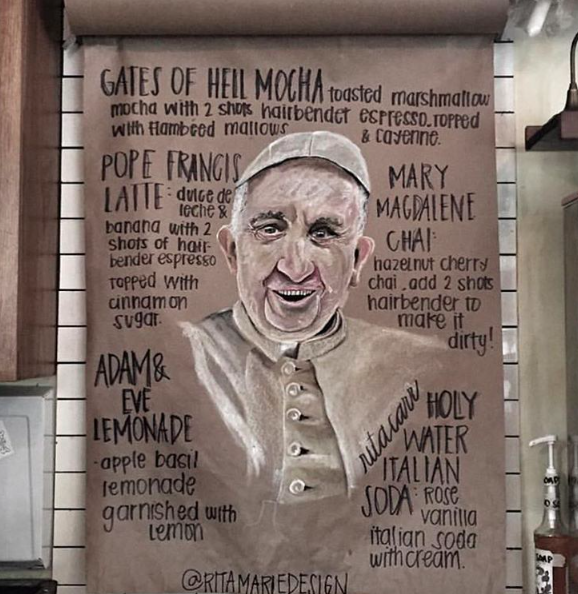 GATES OF HELL MOCHA toasted marshmallow
mocha with 2 shots hairbender espresso. topped
with flambéed mallows & cayenne.
POPE FRANCIS
LATTE: dulce de
leche &
banana with 2
shots of hair-
bender espresso
topped with
cinnamon
sugar.
MARY
MAGDALENE
CHAI:
hazelnut cherry
chai. add 2 shots
hairbender to
make it
dirty!
ADAM &
EVE
LEMONADE
-apple basil
lemonade
garnished with
lemon
ritacarr
HOLY
WATER
ITALIAN
SODA: rose
vanilla
italian soda
with cream.
@RITAMARIEDESIGN